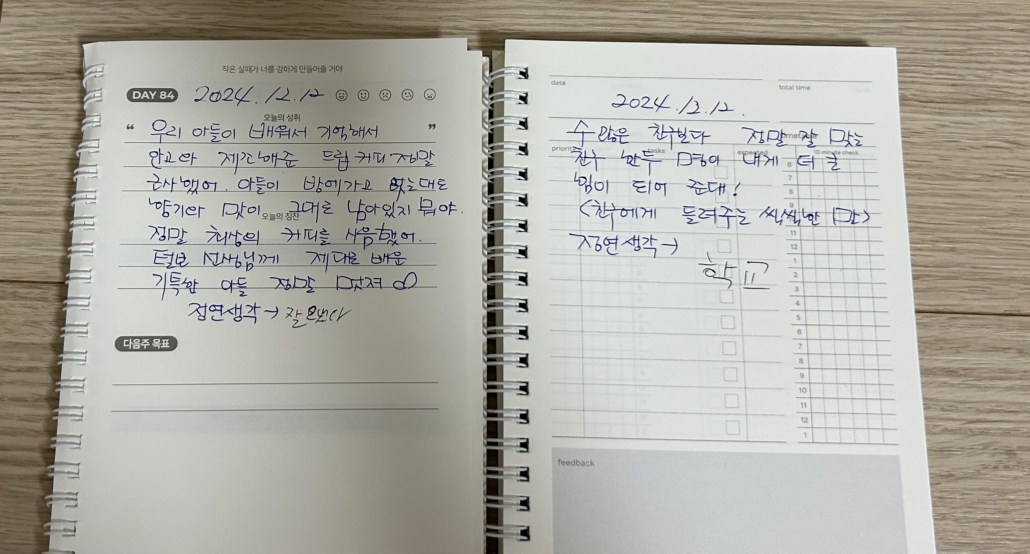 작은 실패가 너를 강하게 만들어줄 거야
DAY 84 2024.12.12
오늘의 성취
“ 우리 아들이 배워서 기억해서 ”
안고와 제조해준 드립커피 정말
근사했어. 아들이 방에가고 없는대도
향기와 맛이 그대로 남아있지 뭐야.
오늘의 칭찬
정말 최상의 커피를 사음했어.
털보 선생님께 제대로 배운
기특한 아들 정말 멋져
정연생각→ 잘했다
다음주 목표
date
total time
2024.12.12.
수 많은 친구보다 정말 잘 맞는
priority
tasks
expected
10 minute check
친구 한두 명이 내게 더 큰
힘이 되어 준대!
<친구에게 들려주는 씩씩한 말>
정연생각→
학교
6
7
8
9
11
12
1
2
3
4
5
6
7
8
9
10
11
12
1
feedback